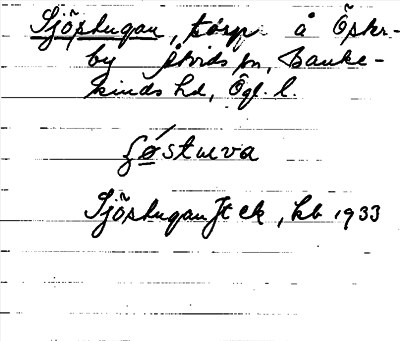 Sjöstugan, torp å Öster-
by Åtvids sn, Banke-
kinds hd, Ögl. l.
ʃǿstuva
Sjöstugan Jt ek, kb 1933